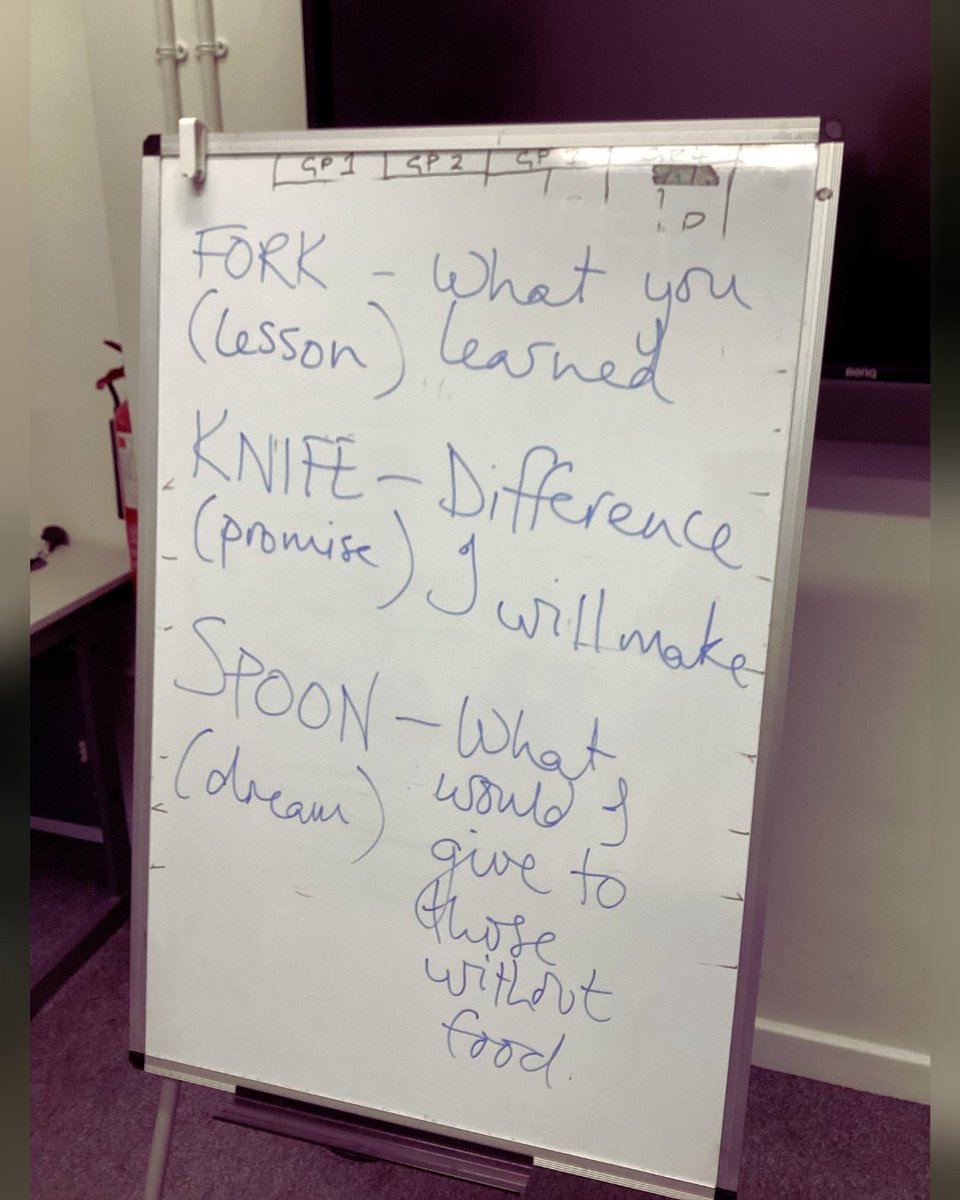 GP 1 GP 2 GP
D
FORK - What you
(lesson) learned
KNIFE - Difference
(promise) I will make
SPOON - What
(dream) would I
give to
those
without
food.
BenQ